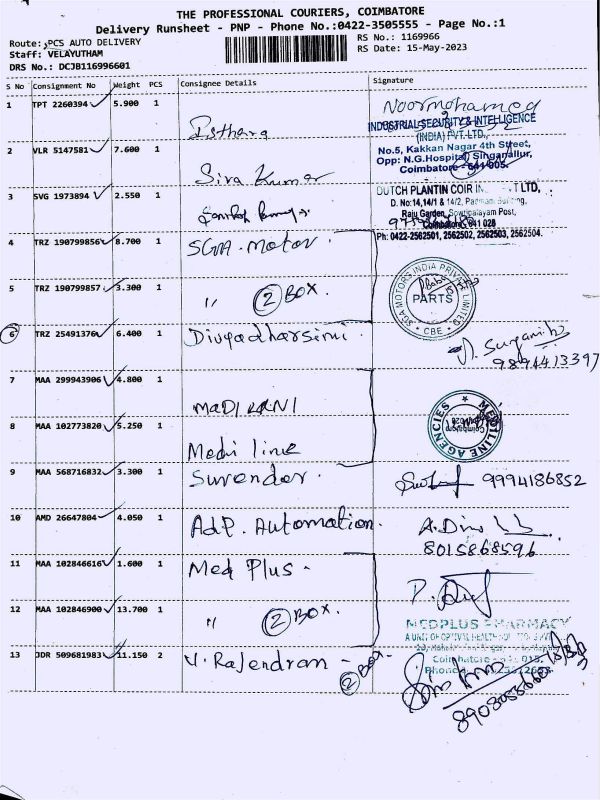 THE PROFESSIONAL COURIERS, COIMBATORE
Delivery Runsheet - PNP - Phone No.:0422-3505555 - Page No.:1
Route: PCS AUTO DELIVERY
Staff: VELAYUTHAM
DRS No.: DCJB116996601
RS No.: 1169966
RS Date: 15-May-2023
S No Consignment No Weight PCS Consignee Details Signature
1 TPT 2260394 5.900 1 Isthara Noormohamed
INDUSTRIAL SECURITY & INTELLIGENCE
(INDIA) PVT. LTD.,
No.5, Kakkan Nagar 4th Street,
Opp: N.G.Hospital, Singanallur,
Coimbatore - 641 005.
2 VLR 5147581 7.600 1 Siva Kumar
3 SVG 1973894 1 2.550
DUTCH PLANTIN COIR LTD,
D. No:14,14/1 & 14/2,
Raju Garden, Sowripalayam Post,
Coimbatore 641 028
Ph: 0422-2562501, 2562502, 2562503, 2562504.
4 TRZ 190799856 8.700 1 SGA. Motor
5 TRZ 190799857 3.300 1 " 2 BOX.
SGA MOTORS INDIA PRIVATE LIMITED
PARTS
CBE
6 TRZ 25491376 6.400 1 Divyadharsini
9894413397
7 MAA 299943906 4.800 1
8 MAA 102773820 5.250 1 Medi line
MEDILINE AGENCIES
9 MAA 568716832 3.300 1 Surender. 9994186852
10 AMD 26647804 4.050 1 AdP. Automation.
8015868596
11 MAA 102846616 1.600 1 Med Plus -
12 MAA 102846900 13.700 1 " 2 BOX.
MEDPLUS PHARMACY
Coimbatore
13 JDR 509681983 11.150 2 V. Rajendran - 2 BOX.